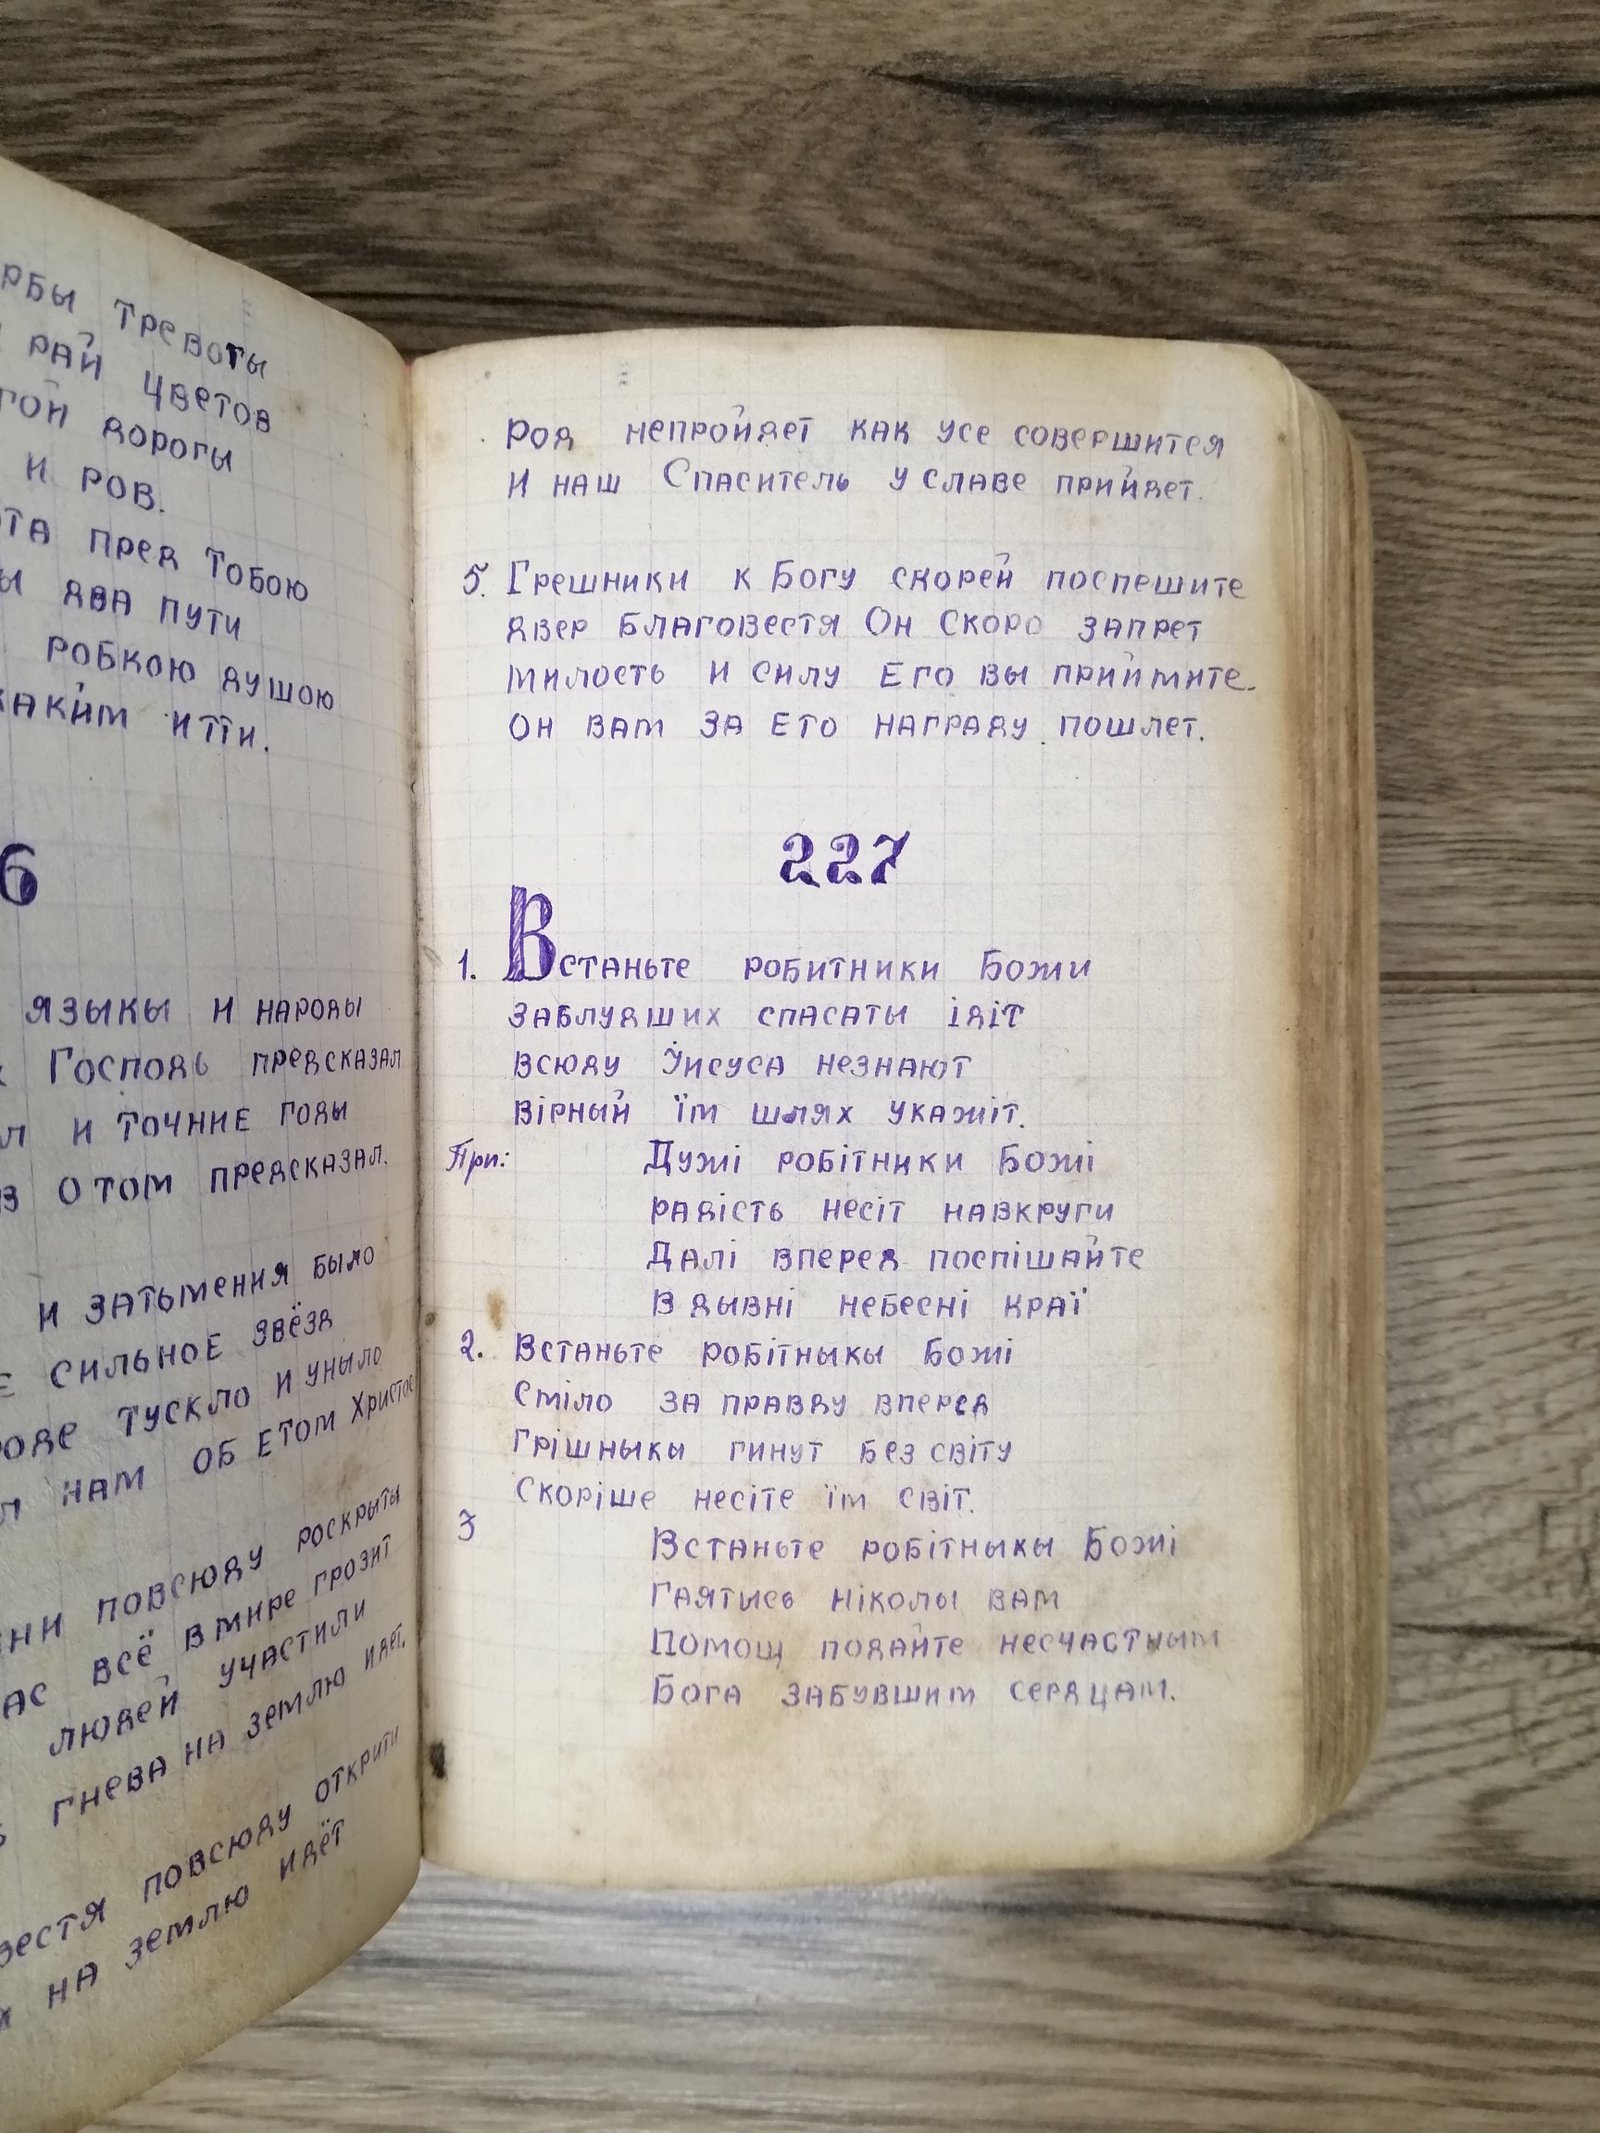 рбы тревоты
рай цветов
гой дороги
и ров.
та пред тобою
ы два пути
робкою душою
каким итти.
6
языки и народы
Господь предсказал
л и точние годы
в о том предсказал.
и затьмения было
е сильное звёзд
роде тускло и уныло
л нам об етом Христос
нии повсюду роскрыты
ас всё в мире грозит
людей участили
гнева на землю идет.
вестя повсюду открити
на землю идёт
род непройдет как усе совершится
и наш Спаситель у славе прийдет.
5. Грешники к Богу скорей поспешите
двер благовестя Он скоро запрет
милость и силу Его вы приймите.
он вам за ето награду пошлет.
227
1. Встаньте робитники Божи
заблудших спасаты ідіт
всюду Йисуса незнают
вірный їм шлях укажіт.
При: Дужі робітники Божі
радість несіт навкруги
Далі вперед поспішайте
в дывні небесні краї
2. Встаньте робітныкы Божі
Сміло за правду вперед
грішныкы гинут без світу
Скоріше несіте їм світ.
3
Встаньте робітныкы Божі
Гаятысь ніколы вам
Помощ подайте несчастным
Бога забувшим сердцам.